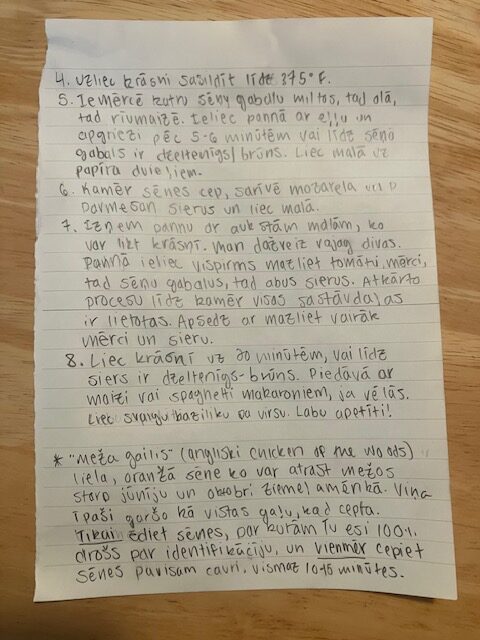 4. Uzliec krāsni sasildīt līdz 375°F.
5. Iemērcē katru sēņu gabalu miltos, tad olā,
tad rīvmaizē. Ieliec pannā ar eļļu un
apgriezi pēc 5-6 minūtēm vai līdz sēņu
gabals ir dzeltenīgs/brūns. Liec malā uz
papīra dvieļiem.
6. Kamēr sēnes cep, sarīvē mozarela un
Parmesan sierus un liec malā.
7. Izņem pannu ar aukstām malām, ko
var likt krāsnī. Man dažreiz vajag divas.
Pannā ieliec vispirms mazliet tomātu mērci,
tad sēņu gabalus, tad abus sierus. Atkārto
procesu līdz kamēr visas sastāvdaļas
ir lietotas. Apsedz ar mazliet vairāk
mērci un sieru.
8. Liec krāsnī uz 20 minūtēm, vai līdz
siers ir dzeltenīgs-brūns. Piedāvā ar
maizi vai spaghetti makaroniem, ja vēlās.
Liec svaigu baziliku pa virsu. Labu apetīti!
* "Meža gailis" (angliski chicken of the woods)
liela, oranžā sēne ko var atrast mežos
starp jūniju un oktobri ziemeļ amērikā. Viņa
īpaši garšo kā vistas gaļu, kad cepta.
Tikai ēdiet sēnes, par kurām Tu esi 100%
drošs par identifikāciju, un vienmēr cepiet
sēnes pavisam cauri, vismaz 10-15 minūtes.